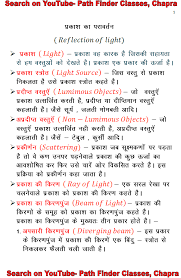 Search on YouTube- Path Finder Classes, Chapra
1
प्रकाश का परावर्तन
( Reflection of light )
➢ प्रकाश ( Light ) – प्रकाश वह कारक है जिसकी सहायता
से हम वस्तुओं को देखते है। प्रकाश एक प्रकार की ऊर्जा है।
➢ प्रकाश स्रोत ( Light Source ) – जिस वस्तु से प्रकाश
निकलता है उसे प्रकाश स्रोत कहते है।
➢ प्रदीप्त वस्तुएँ ( Luminous Objects ) – जो वस्तुएँ
प्रकाश उत्सर्जित करती हैं, प्रदीप्त या दीप्तिमान वस्तुएँ
कहलाती है। जैसे सूर्य , जलती मोमबत्ती आदि।
➢ अप्रदीप्त वस्तुएँ ( Non – Luminous Objects ) – जो
वस्तुएँ प्रकाश उत्सर्जित नहीं करती, अप्रदीप्त वस्तुएँ
कहलाती हैं। जैसे – टेबुल , कुर्सी आदि।
➢ प्रकीर्णन (Scattering) – प्रकाश जब सूक्ष्मकणों पर पड़ता
है तो ये कण उनपर पड़नेवाले प्रकाश की कुछ ऊर्जा का
अवशोषित कर फिर उसे चारों ओर विकसित करते है। इस
प्रक्रिया को प्रकीर्णन कहा जाता है।
➢ प्रकाश की किरण ( Ray of Light ) – एक सरल रेखा पर
चलनेवाले प्रकाश को प्रकाश की किरण कहते है।
➢ प्रकाश का किरणपुंज (Beam of Light) – प्रकाश की
किरणों के समूह को प्रकाश का किरणपुंज कहते है।
प्रकाश के किरणपुंज के मुख्यतः तीन प्रकार होते हैं। –
१. अपसारी किरणपुंज ( Diverging beam) – इस प्रकार
के किरणपुंज में प्रकाश की किरणें एक बिंदु – स्रोत से
निकलकर फैलती चली जाती है।
Search on YouTube- Path Finder Classes, Chapra